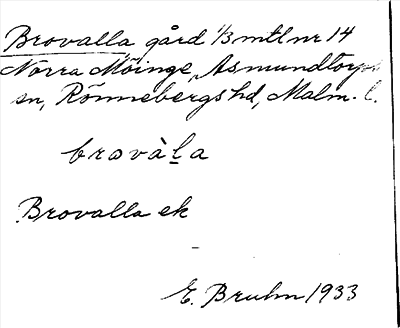 Brovalla gård 1/3 mtl nr 14
Norra Möinge, Asmundtorps
sn, Rönnebergs hd, Malm. l.
brovàla
Brovalla ek
E. Bruhn 1933